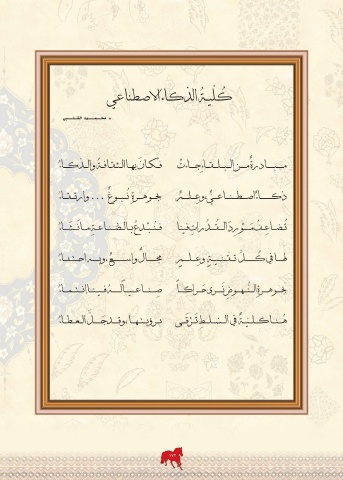 كُلّيةُ الذكاء الاصطناعي
د. محمود الشلبي
مبادرةٌ من البلقاء جاءتْ فكان بها الثقافةُ والذكاءُ
ذكاءٌ اصطناعيٌّ وعلمٌ بجوهرةٍ نبوغٌ ... وارتقاءُ
تُضاعفُ مَوْردَ القُدُراتِ فينا فنُبدعُ بالصناعةِ ما نشاءُ
لها في كُلّ تقنيةٍ وعلمٍ مجالٌ واسعٌ، وبه احتفاءُ
بجوهرةِ النُّهوضِ نرى حَراكاً صناعياً لهُ فينا انتماءُ
هنا كليةٌ في السّلطِ تَرْقى برؤيتها، وقد جَلَّ العطاءُ